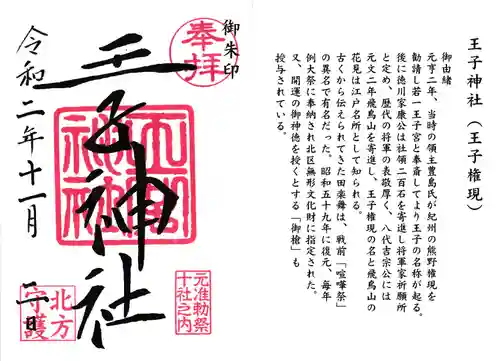 王子神社(王子権現)
御由緒
元亨二年、当時の領主豊島氏が紀州の熊野権現を
勧請し若一王子宮と奉斎してより王子の名称が起る。
後に徳川家康公は社領二百石を寄進し将軍家祈願所
と定め、歴代の将軍の表敬厚く、八代吉宗公には
元文二年飛鳥山を寄進し、王子権現の名と飛鳥山の
花見は江戸名所として知られる。
古くから伝えられてきた田楽舞は、戦前「喧嘩祭」
の異名で有名だった。昭和五十九年に復元、毎年
例大祭に奉納され北区無形文化財に指定された。
又、開運の御神徳を授くとする「御槍」も
授与されている。
御朱印
奉拝
王子神社
王子神社
元准勅祭
十社之内
令和二年十一月
二日
北方
守護